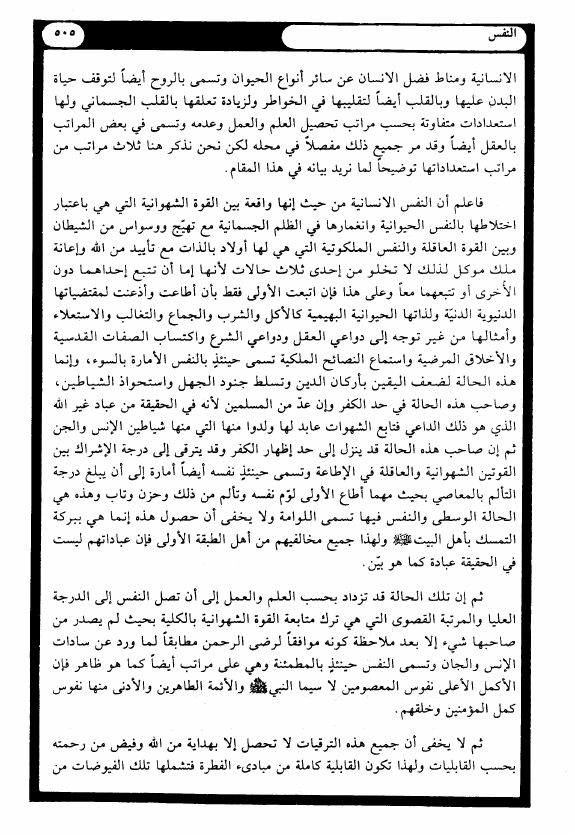 النفس
٥٠٥
الانسانية ومناط فضل الانسان عن سائر أنواع الحيوان وتسمى بالروح أيضاً لتوقف حياة
البدن عليها وبالقلب أيضاً لتقليبها في الخواطر ولزيادة تعلقها بالقلب الجسماني ولها
استعدادات متفاوتة بحسب مراتب تحصيل العلم والعمل وعدمه وتسمى في بعض المراتب
بالعقل أيضاً وقد مر جميع ذلك مفصلاً في محله لكن نحن نذكر هنا ثلاث مراتب من
مراتب استعداداتها توضيحاً لما نريد بيانه في هذا المقام.
فاعلم أن النفس الانسانية من حيث إنها واقعة بين القوة الشهوانية التي هي باعتبار
اختلاطها بالنفس الحيوانية وانغمارها في الظلم الجسمانية مع تهيّج ووسواس من الشيطان
وبين القوة العاقلة والنفس الملكوتية التي هي لها أولاد بالذات مع تأييد من الله وإعانة
ملك موكل لذلك لا تخلو من إحدى ثلاث حالات لأنها إما أن تتبع إحداهما دون
الأخرى أو تتبعهما معاً وعلى هذا فإن اتبعت الأولى فقط بأن أطاعت وأذعنت لمقتضياتها
الدنيوية الدنيّة ولذاتها الحيوانية البهيمية كالأكل والشرب والجماع والتغالب والاستعلاء
وأمثالها من غير توجه إلى دواعي العقل ودواعي الشرع واكتساب الصفات القدسية
والأخلاق المرضية واستماع النصائح الملكية تسمى حينئذٍ بالنفس الأمارة بالسوء، وإنما
هذه الحالة لضعف اليقين بأركان الدين وتسلط جنود الجهل واستحواذ الشياطين،
وصاحب هذه الحالة في حد الكفر وإن عدّ من المسلمين لأنه في الحقيقة من عباد غير الله
الذي هو ذلك الداعي فتابع الشهوات عابد لها ولدوا منها التي منها شياطين الإنس والجن
ثم إن صاحب هذه الحالة قد ينزل إلى حد إظهار الكفر وقد يترقى إلى درجة الإشراك بين
القوتين الشهوانية والعاقلة في الإطاعة وتسمى حينئذٍ نفسه أيضاً أمارة إلى أن يبلغ درجة
التألم بالمعاصي بحيث مهما أطاع الأولى لوّم نفسه وتألم من ذلك وحزن وتاب وهذه هي
الحالة الوسطى والنفس فيها تسمى اللوامة ولا يخفى أن حصول هذه إنما هي ببركة
التمسك بأهل البيت ولهذا جميع مخالفيهم من أهل الطبقة الأولى فإن عباداتهم ليست
في الحقيقة عبادة كما هو بيّن.
ثم إن تلك الحالة قد تزداد بحسب العلم والعمل إلى أن تصل النفس إلى الدرجة
العليا والمرتبة القصوى التي هي ترك متابعة القوة الشهوانية بالكلية بحيث لم يصدر من
صاحبها شيء إلا بعد ملاحظة كونه موافقاً لرضى الرحمن مطابقاً لما ورد عن سادات
الإنس والجان وتسمى النفس حينئذٍ بالمطمئنة وهي على مراتب أيضاً كما هو ظاهر فإن
الأكمل الأعلى نفوس المعصومين لا سيما النبي ﷺ والأئمة الطاهرين والأدنى منها نفوس
كمل المؤمنين وخلقهم.
ثم لا يخفى أن جميع هذه الترقيات لا تحصل إلا بهداية من الله وفيض من رحمته
بحسب القابليات ولهذا تكون القابلية كاملة من مبادىء الفطرة فتشملها تلك الفيوضات من